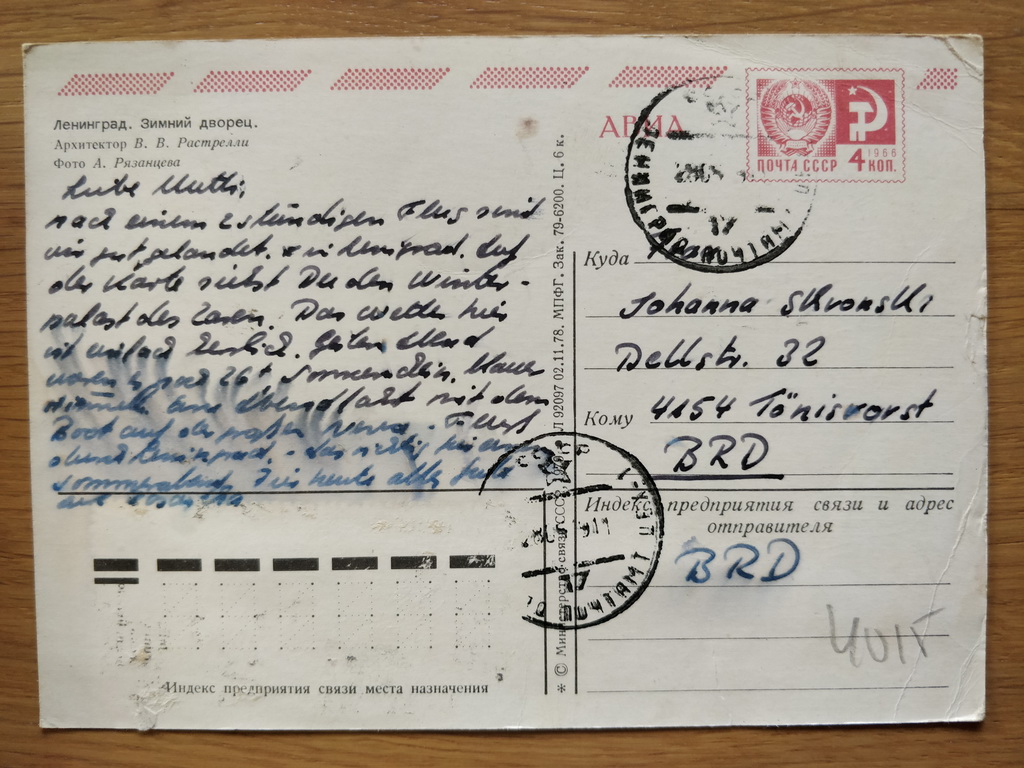 Ленинград. Зимний дворец.
Архитектор В. В. Растрелли
Фото А. Рязанцева
АВИА
1966
4 КОП.
ПОЧТА СССР
Liebe Mutti,
nach einem 2 stündigen Flug sind
wir gut gelandet. in Leningrad. Auf
der Karte siehst Du den Winter-
palast des Zaren. Das Wetter hier
ist einfach herrlich. Gestern Abend
waren 26+ Sonnenschein.
eine Abendfahrt mit dem
Boot auf der großen Newa. -
Leningrad. -
heute alles Gute
ЛЕНИНГРАД ПОЧТАМТ
17
Куда
Johanna Skronski
Dellstr. 32
Кому 4154 Tönisvorst
BRD
Индекс предприятия связи и адрес
отправителя
BRD
ПОЧТАМТ
17
* © Министерство связи СССР, 92097 02.11.78. МПФГ. Зак. 79-6200. Ц. 6 к.
Индекс предприятия связи места назначения